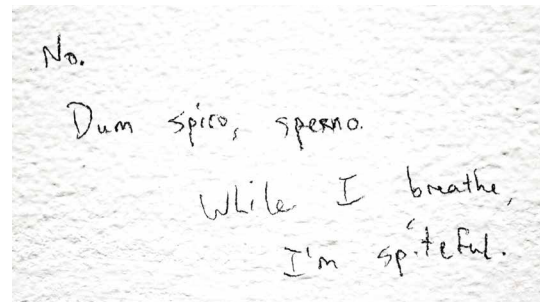 No.
Dum spiro, sperno.
While I breathe,
I'm spiteful.